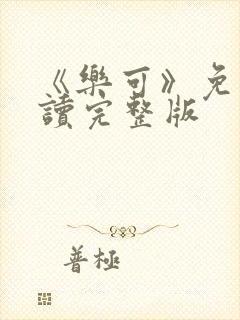 《樂可》免
讀完整版
普極